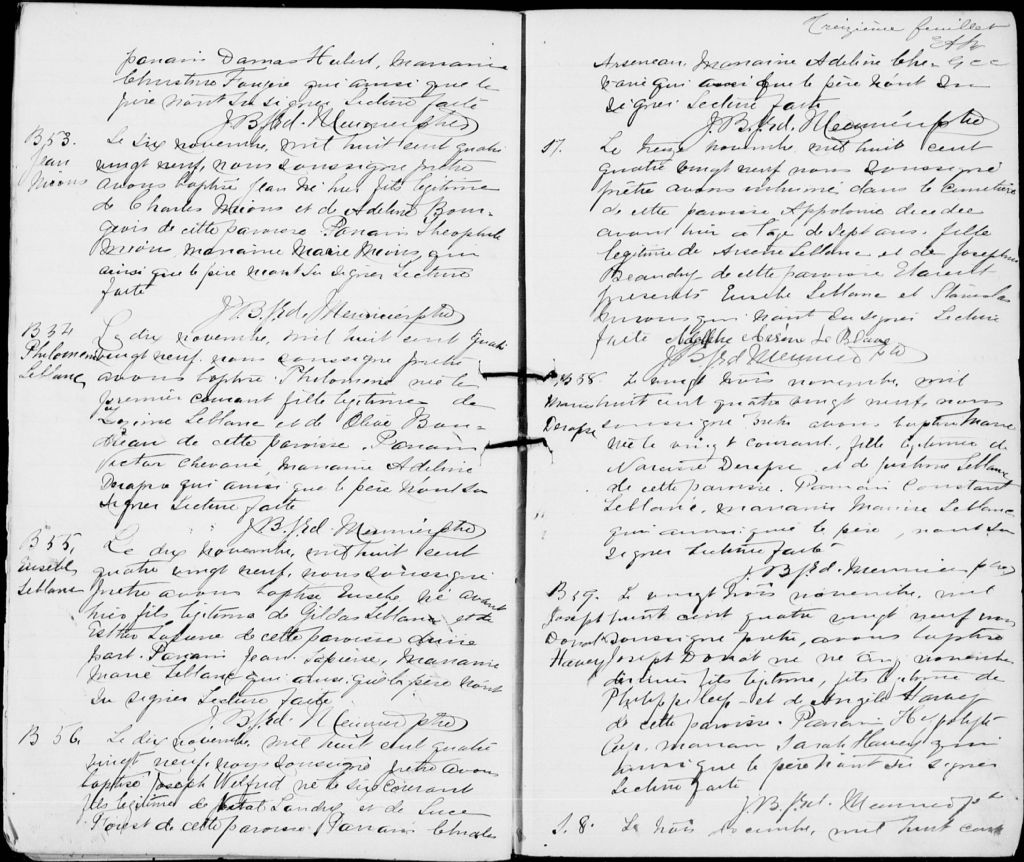 parrain Damas Hubert, Marraine
Christine qui ainsi que le
père n'ont su signer Lecture faite
J. B. Ed. Meunier ptre
B 53.
Jean
Meions
Le six novembre, mil huit cent quatre
vingt neuf, nous soussigné prêtre
avons baptisé Jean né hier fils légitime
de Charles Meions et de Adeline Bour-
geois de cette paroisse. Parrain Théophile
Meions, marraine Marie Meions qui
ainsi que le père n'ont su signer Lecture
faite
J. B. Ed. Meunier ptre
B 54
Philomene
Leblanc
Le dix novembre, mil huit cent quatre
vingt neuf, nous soussigné prêtre
avons baptisé Philomene née le
premier courant fille légitime de
Leblanc et de Olive Bou-
dreau de cette paroisse. Parrain
Victor Chevarie, Marraine Adeline
Deraspe qui ainsi que le père n'ont su
signer Lecture faite
J. B. Ed. Meunier ptre
B 55.
Eusebe
Leblanc
Le dix novembre, mil huit cent
quatre vingt neuf, nous soussigné
prêtre avons baptisé Eusebe né avant
hier fils légitime de Gildas Leblanc et de
Esther de cette paroisse d'une
part. Parrain Jean Lapierre, Marraine
Marie Leblanc qui ainsi que le père n'ont
su signer Lecture faite
J. B. Ed. Meunier ptre
B 56
Le dix novembre, mil huit cent quatre
vingt neuf, nous soussigné prêtre avons
baptisé Joseph Wilfred né le six courant
fils légitime de Vital Landry et de Luce
Poirier de cette paroisse. Parrain Charles
Treizième feuillet
Arseneau, Marraine Adeline Che-
varie qui aussi que le père n'ont su
signer Lecture faite
J. B. Ed. Meunier ptre
S7.
Le treize novembre, mil huit cent
quatre vingt neuf nous soussigné
prêtre avons inhumé dans le cimetière
de cette paroisse, Appolonie decedée
avant hier a l'age de sept ans, fille
légitime de Arsène Leblanc et de Josephine
Beaudry de cette paroisse Etaient
presents Eusebe Leblanc et Stanislas
qui n'ont su signer Lecture
faite Adolphe Arsène Le Blanc
J. B. Ed Meunier ptre
B 58
Marie
Deraspe
Le vingt trois novembre, mil
huit cent quatre vingt neuf, nous
soussigné prêtre avons baptisé Marie
née le vingt courant, fille légitime de
Narcisse Deraspe, et de Justine Leblanc
de cette paroisse. Parrain Constant
Leblanc, marraine Marine Leblanc
qui ainsi que le père, n'ont su
signer Lecture faite
J. B. Ed. Meunier ptre
B 59.
Joseph
Donat
Harvey
Le vingt trois novembre, mil
huit cent quatre vingt neuf nous
soussigné prêtre, avons baptisé
Joseph Donat né le cinq novembre
fils légitime, fils légitime de
Philippe Cusp et de Angèle Harvey
de cette paroisse. Parrain Hyppolyte
Cusp, marraine Sarah Harvey qui
ainsi que le père n'ont su signer
Lecture faite
J. B. Ed. Meunier ptre
S. 8.
Le trois decembre, mil huit cent